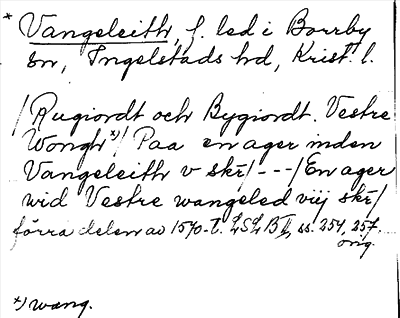 * Vangeleith, f. led i Borrby
sn, Ingelstads hd, Krist. l.
/Rugiordt och Bygiordt. Vestre
Wongh*)/ Paa en ager inden
Vangeleith v skr̄/---/En ager
wid Vestre wangeled viij skr̄/
förra delen av 1570-t. LSLB II, ss. 254, 257.
orig.
*) wang.